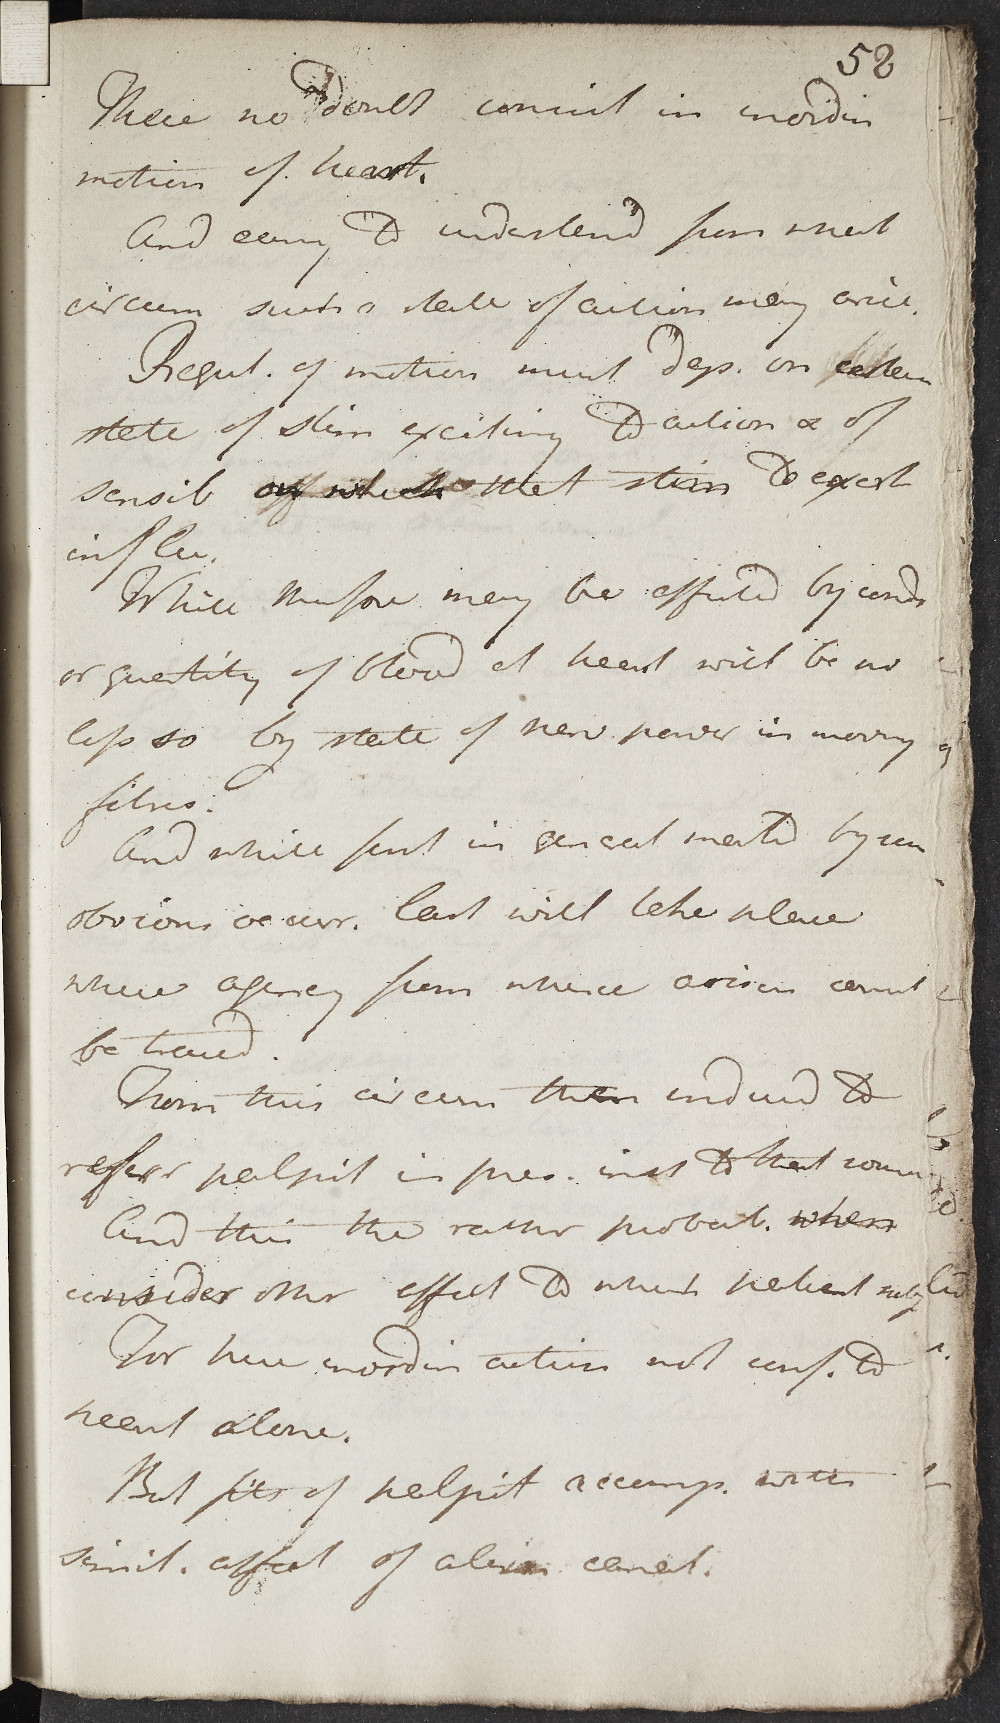 58
These no doubt consist in inordin
motion of heart.
And easy to understand from what
circum such a state of action may arise.
Regul. of motion must dep. on certain
state of stim exciting to action & of
sensib on which that stim to exert
influ.
While therefore may be affected by cond
or quantity of blood at heart will be no
less so by state of nerv. power in moving
fibres.
And while first in general mark'd by some
obvious occurr. last will take place
where agency from whence arises cannot
be traced.
From this circum then induced to
referr palpit in pres. inst to that source
And this the rather probab. when
consider other effect to which patient subj
For here inordin action not conf. to
heart alone.
But fits of palpit accomp. with
simil. affect of alim canal.